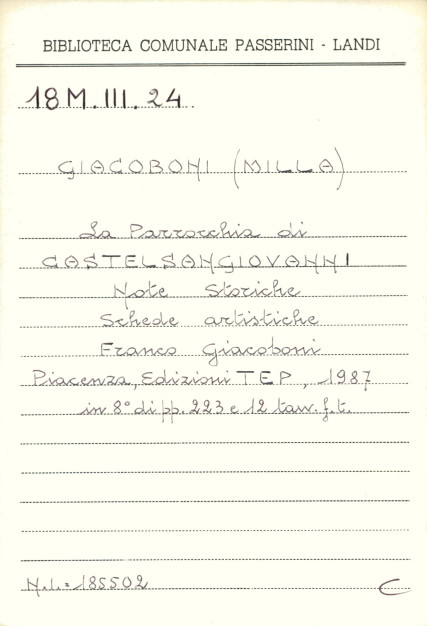 BIBLIOTECA COMUNALE PASSERINI - LANDI
18 M. III. 24.
GIACOBONI (MILLA)
La Parrocchia di
CASTELSANGIOVANNI
Note Storiche
Schede artistiche
Franco Giacoboni
Piacenza, Edizioni TEP, 1987
in 8° di pp. 223 e 12 tav. f.t.
N.I. = 185502
C